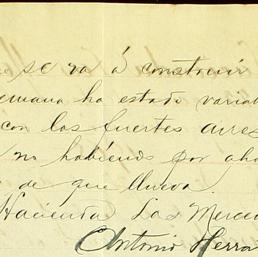 se va á construir
semana ha estado variab
con los fuertes aires
no habiendo por aho
de que llueva.
Hacienda Las Merced
Antonio Herra